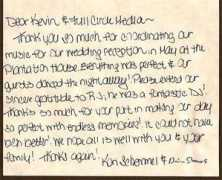 Dear Kevin & Full Circle Media~
Thank you so much for coordinating our
music for our wedding reception in May at the
Plantation House. Everything was perfect & our
guests danced the night away! Please extend our
sincere gratitude to R.J., he was a fantastic DJ!
Thanks so much, for your part, in making our day
so perfect with endless memories! It could not have
been better! We hope all is well with you & your
family! Thanks again!